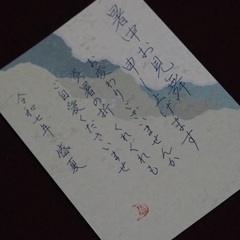 暑中お見舞
申し上げます
お変わりございませんか
炎暑の折 くれぐれも
ご自愛くださいませ
令和七年 盛夏